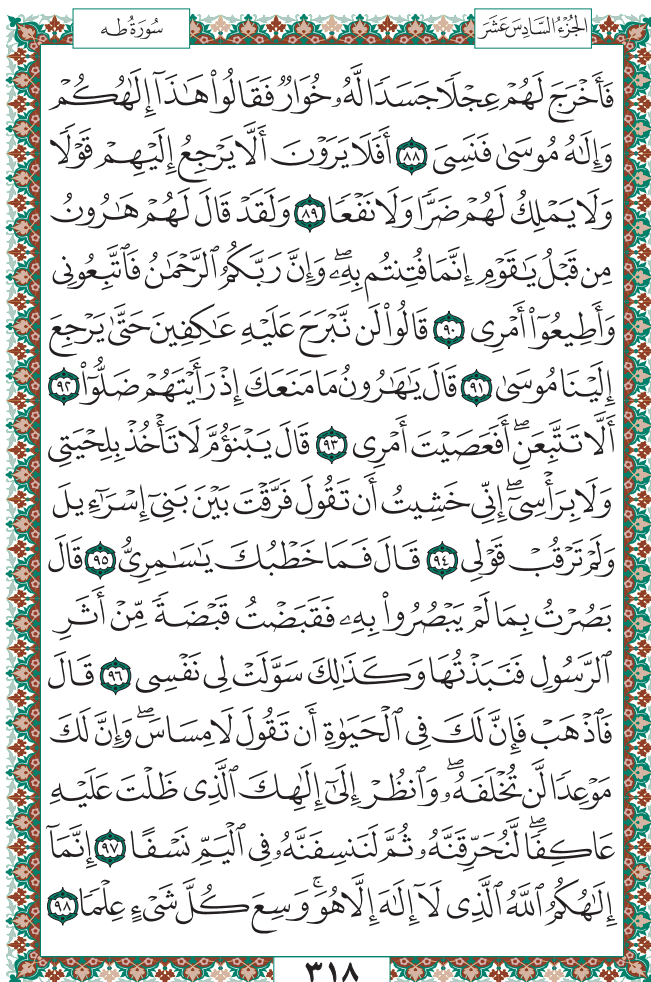 الجُزْءُ السَّادِسَ عَشَرَ
سُورَةُ طه
فَأَخْرَجَ لَهُمْ عِجْلًا جَسَدًا لَّهُۥ خُوَارٌ فَقَالُوا۟ هَٰذَآ إِلَٰهُكُمْ
وَإِلَٰهُ مُوسَىٰ فَنَسِىَ ٨٨ أَفَلَا يَرَوْنَ أَلَّا يَرْجِعُ إِلَيْهِمْ قَوْلًا
وَلَا يَمْلِكُ لَهُمْ ضَرًّا وَلَا نَفْعًا ٨٩ وَلَقَدْ قَالَ لَهُمْ هَٰرُونُ
مِن قَبْلُ يَٰقَوْمِ إِنَّمَا فُتِنتُم بِهِۦۖ وَإِنَّ رَبَّكُمُ ٱلرَّحْمَٰنُ فَٱتَّبِعُونِى
وَأَطِيعُوٓا۟ أَمْرِى ٩٠ قَالُوا۟ لَن نَّبْرَحَ عَلَيْهِ عَٰكِفِينَ حَتَّىٰ يَرْجِعَ
إِلَيْنَا مُوسَىٰ ٩١ قَالَ يَٰهَٰرُونُ مَا مَنَعَكَ إِذْ رَأَيْتَهُمْ ضَلُّوٓا۟ ٩٢
أَلَّا تَتَّبِعَنِۖ أَفَعَصَيْتَ أَمْرِى ٩٣ قَالَ يَبْنَؤُمَّ لَا تَأْخُذْ بِلِحْيَتِى
وَلَا بِرَأْسِىٓۖ إِنِّى خَشِيتُ أَن تَقُولَ فَرَّقْتَ بَيْنَ بَنِىٓ إِسْرَٰٓءِيلَ
وَلَمْ تَرْقُبْ قَوْلِى ٩٤ قَالَ فَمَا خَطْبُكَ يَٰسَٰمِرِىُّ ٩٥ قَالَ
بَصُرْتُ بِمَا لَمْ يَبْصُرُوا۟ بِهِۦ فَقَبَضْتُ قَبْضَةً مِّنْ أَثَرِ
ٱلرَّسُولِ فَنَبَذْتُهَا وَكَذَٰلِكَ سَوَّلَتْ لِى نَفْسِى ٩٦ قَالَ
فَٱذْهَبْ فَإِنَّ لَكَ فِى ٱلْحَيَوٰةِ أَن تَقُولَ لَا مِسَاسَۖ وَإِنَّ لَكَ
مَوْعِدًا لَّن تُخْلَفَهُۥۖ وَٱنظُرْ إِلَىٰٓ إِلَٰهِكَ ٱلَّذِى ظَلْتَ عَلَيْهِ
عَاكِفًاۖ لَّنُحَرِّقَنَّهُۥ ثُمَّ لَنَنسِفَنَّهُۥ فِى ٱلْيَمِّ نَسْفًا ٩٧ إِنَّمَآ
إِلَٰهُكُمُ ٱللَّهُ ٱلَّذِى لَآ إِلَٰهَ إِلَّا هُوَۚ وَسِعَ كُلَّ شَىْءٍ عِلْمًا ٩٨
٣١٨